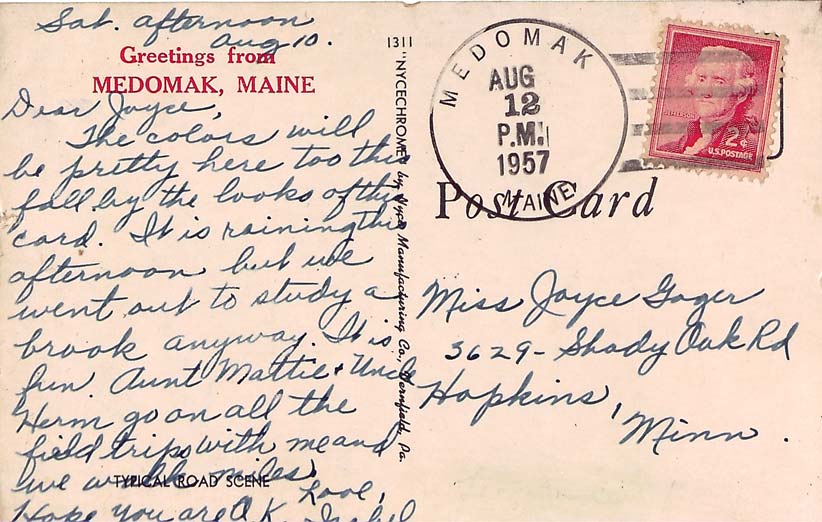 Sat. afternoon
Aug 10.
Greetings from
MEDOMAK, MAINE
Dear Joyce,
The colors will
be pretty here too this
fall by the looks of this
card. It is raining this
afternoon but we
went out to study a
brook anyway. It is
fun. Aunt Mattie & Uncle
Herm go on all the
field trips with me and
we walk miles.
TYPICAL ROAD SCENE
Love,
Hope you are O.K. Isabel
1311 "NYCECHROME" by Nyce Manufacturing Co., Vernfield, Pa.
MEDOMAK
AUG
12
P.M.
1957
MAINE
JEFFERSON
2¢
U.S. POSTAGE
Post Card
Miss Joyce Gager
3629 - Shady Oak Rd
Hopkins,
Minn.